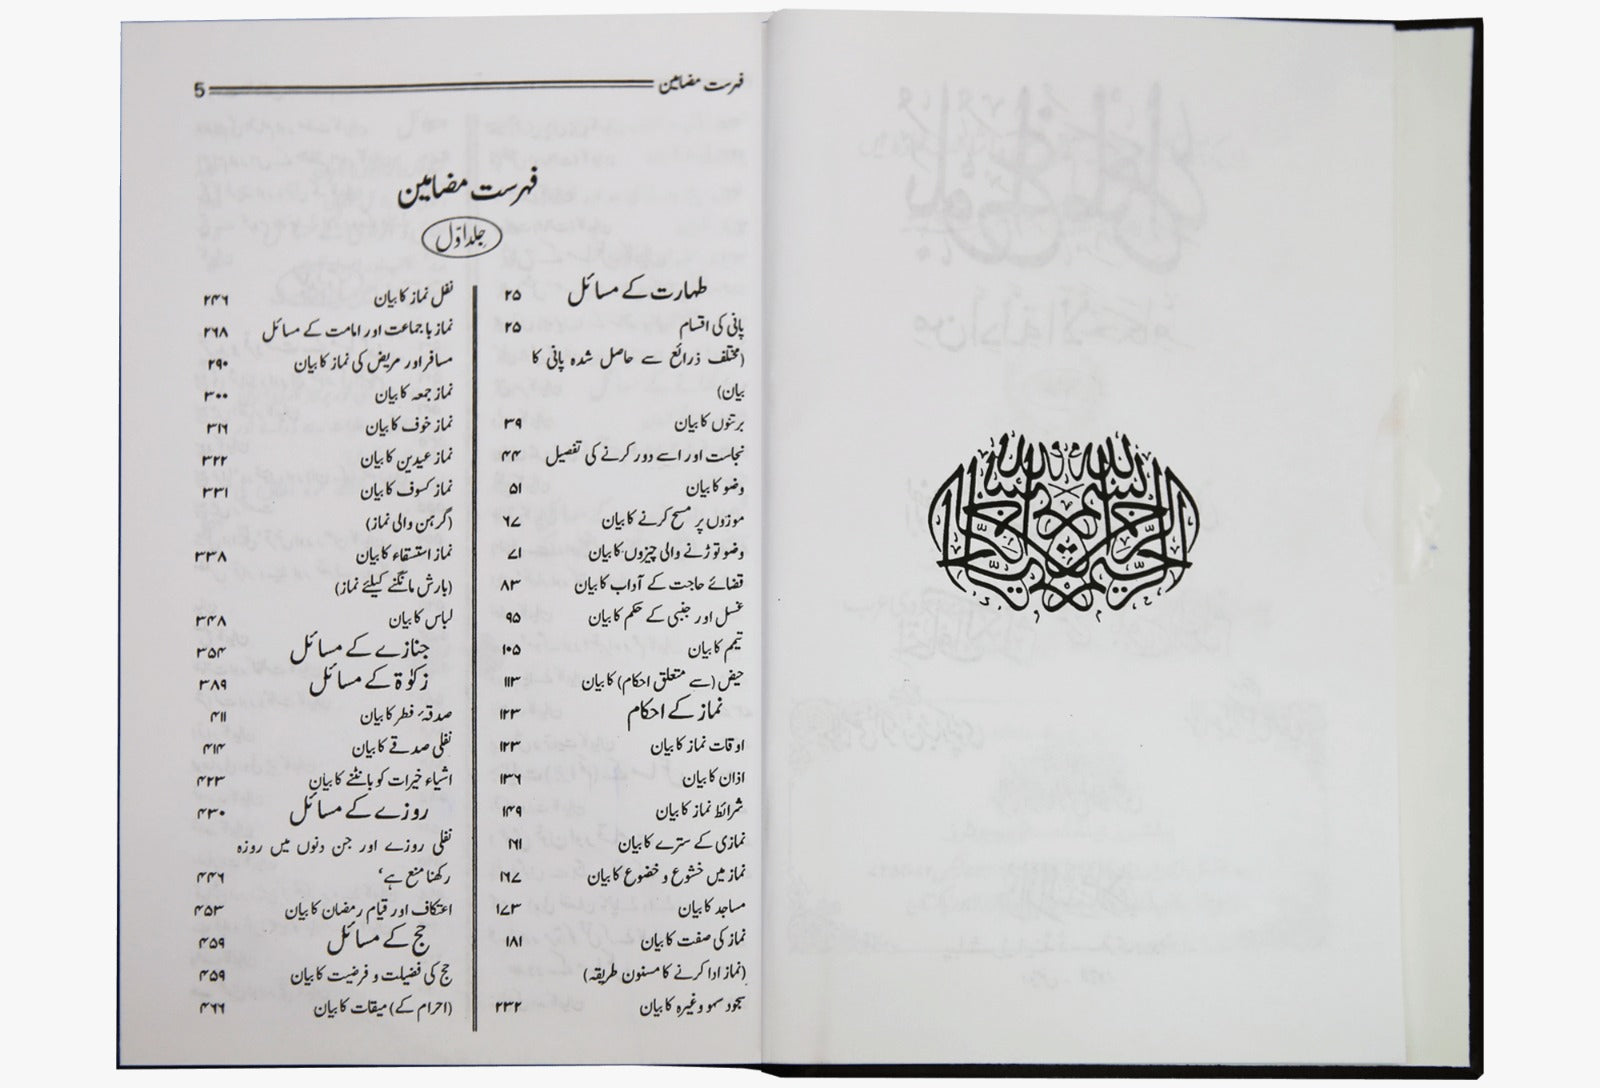 بسم الله الرحمن الرحيم
فہرست مضامین 5
فہرست مضامین
جلد اوّل
طہارت کے مسائل ۲۵
پانی کی اقسام ۲۵
(مختلف ذرائع سے حاصل شدہ پانی کا
بیان)
برتنوں کا بیان ۳۹
نجاست اور اسے دور کرنے کی تفصیل ۴۴
وضو کا بیان ۵۱
موزوں پر مسح کرنے کا بیان ۶۷
وضو توڑنے والی چیزوں کا بیان ۷۱
قضائے حاجت کے آداب کا بیان ۸۳
غسل اور جنبی کے حکم کا بیان ۹۵
تیمم کا بیان ۱۰۵
حیض (سے متعلق احکام) کا بیان ۱۱۳
نماز کے احکام ۱۲۳
اوقات نماز کا بیان ۱۲۳
اذان کا بیان ۱۳۶
شرائط نماز کا بیان ۱۴۹
نمازی کے سترے کا بیان ۱۶۱
نماز میں خشوع و خضوع کا بیان ۱۶۷
مساجد کا بیان ۱۷۳
نماز کی صفت کا بیان ۱۸۱
(نماز ادا کرنے کا مسنون طریقہ)
سجود سہو وغیرہ کا بیان ۲۳۲
نفل نماز کا بیان ۲۴۶
نماز باجماعت اور امامت کے مسائل ۲۶۸
مسافر اور مریض کی نماز کا بیان ۲۹۰
نماز جمعہ کا بیان ۳۰۰
نماز خوف کا بیان ۳۱۶
نماز عیدین کا بیان ۳۲۲
نماز کسوف کا بیان ۳۳۱
(گرہن والی نماز)
نماز استسقاء کا بیان ۳۳۸
(بارش مانگنے کیلئے نماز)
لباس کا بیان ۳۴۸
جنازے کے مسائل ۳۵۴
زکوٰۃ کے مسائل ۳۸۹
صدقۂ فطر کا بیان ۴۱۱
نفلی صدقے کا بیان ۴۱۴
اشیاء خیرات کو بانٹنے کا بیان ۴۲۳
روزے کے مسائل ۴۳۰
نفلی روزے اور جن دنوں میں روزہ
رکھنا منع ہے‘ ۴۴۶
اعتکاف اور قیام رمضان کا بیان ۴۵۳
حج کے مسائل ۴۵۹
حج کی فضیلت و فرضیت کا بیان ۴۵۹
(احرام کے) میقات کا بیان ۴۶۶